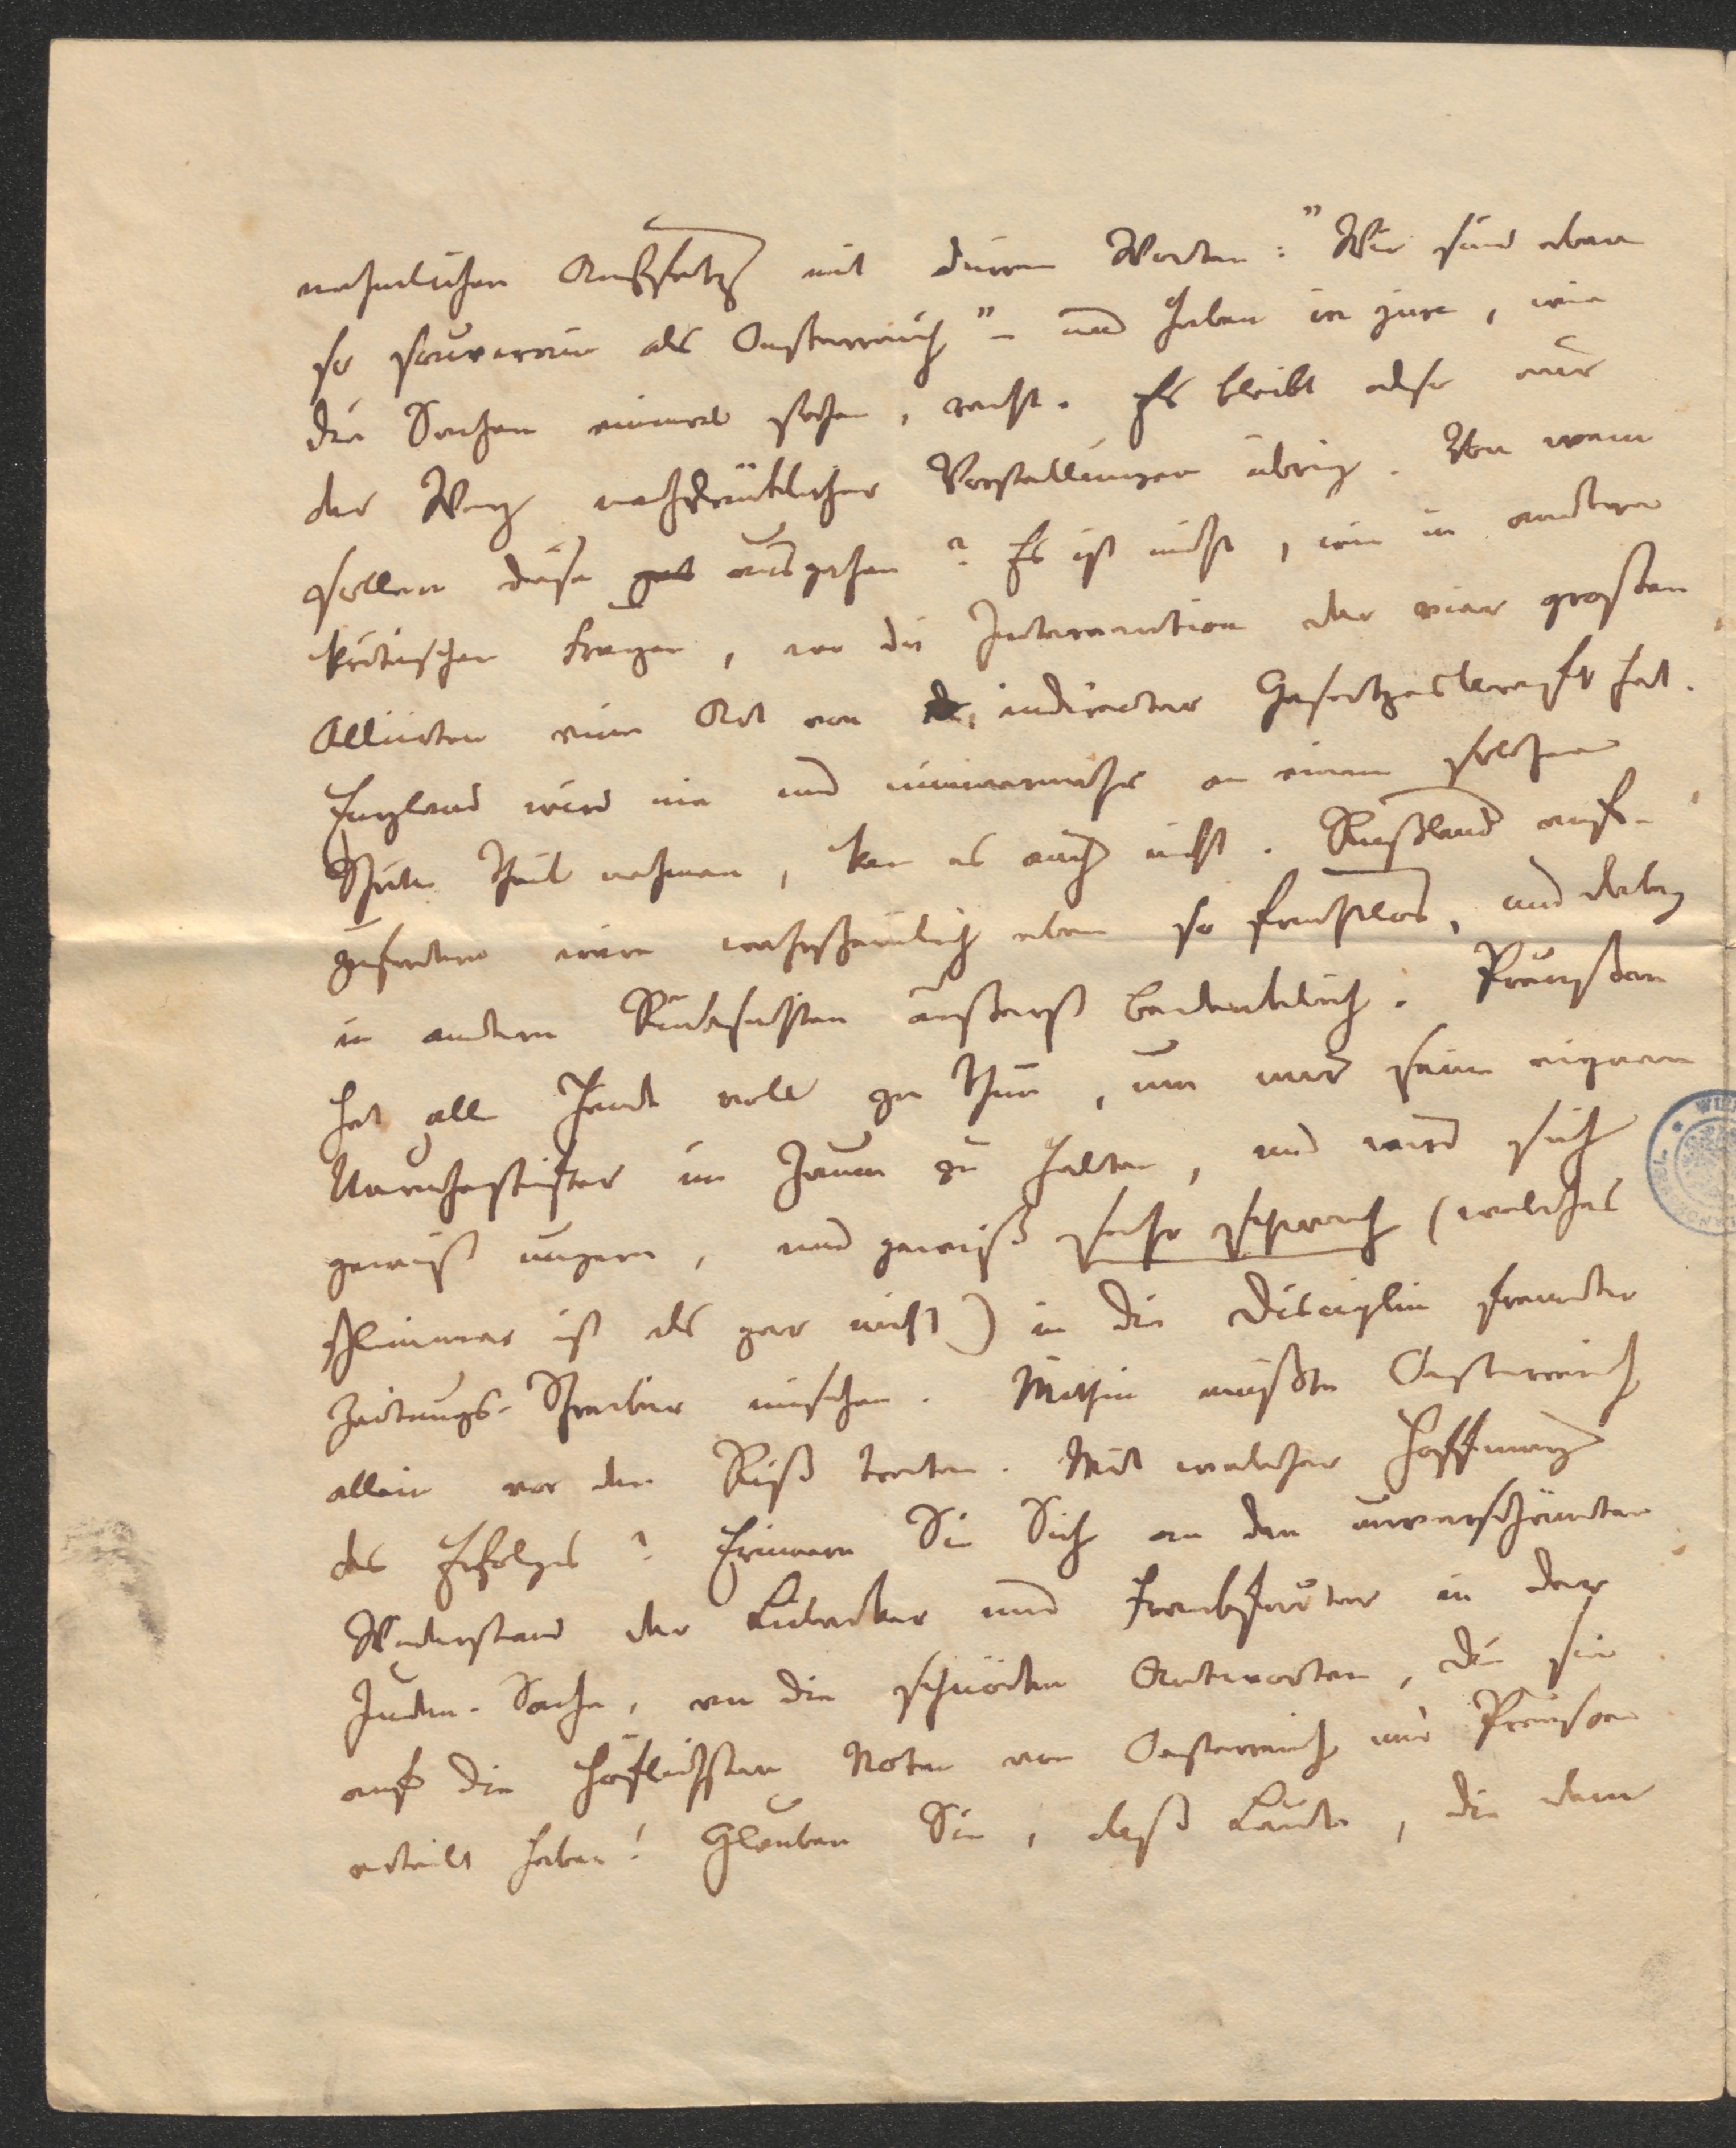 nehmlichen Aufsatz mit dürren Worten: "Wir sind eben
so souverain als Oesterreich" – und haben in jure, wie
die Sachen einmal stehen, recht. Es bleibt also nur
der Weg nachdrücklicher Vorstellungen übrig. Von wem
sollen diese ausgehen? Es ist nicht, wie in andern
kritischen Fragen, wo die Intervention der vier großen
Alliirten eine Art von indirecter Gesetzeskraft hat.
England wird nie und nimmermehr an einem solchen
Schritte Theil nehmen, kan es auch nicht. Rußland auf-
zufordern wäre wahrscheinlich eben so fruchtlos, und dabey
in andern Rücksichten äußerst bedenklich. Preußen
hat alle Hände voll zu thun, um nur seine eignen
Unruhestifter im Zaum zu halten, und wird sich
gewiß ungern, und gewiß sehr schwach (welches
schlimmer ist als gar nicht) in die Disciplin fremder
Zeitungs-Schreiber mischen. Mithin müßte Oesterreich
allein vor den Riß treten. Mit welcher Hoffnung
des Erfolges? Erinnern Sie Sich an den unverschämten
Widerstand der Lübecker und Frankfurter in der
Juden-Sache, an die schnöden Antworten, die sie
auf die höflichsten Noten von Oesterreich und Preussen
ertheilt haben! Glauben Sie, daß Leute, die dem